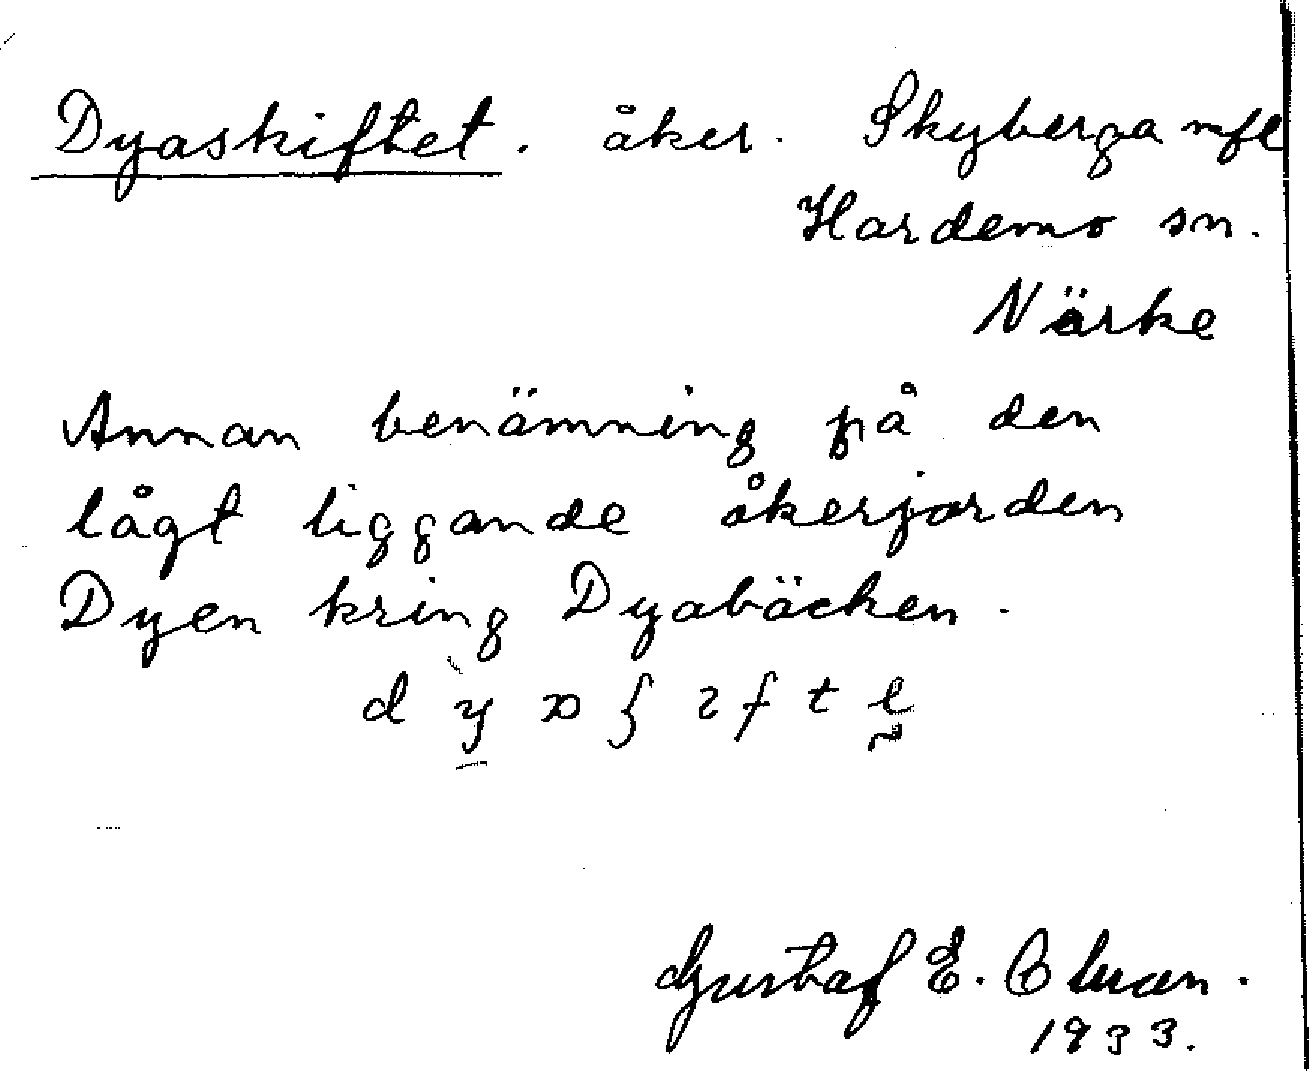 Dyaskiftet. åker. Skyberga mfl
Hardemo sn.
Närke
Annan benämning på den
lågt liggande åkerjorden
Dyen kring Dyabäcken.
Gustaf E.
1933.